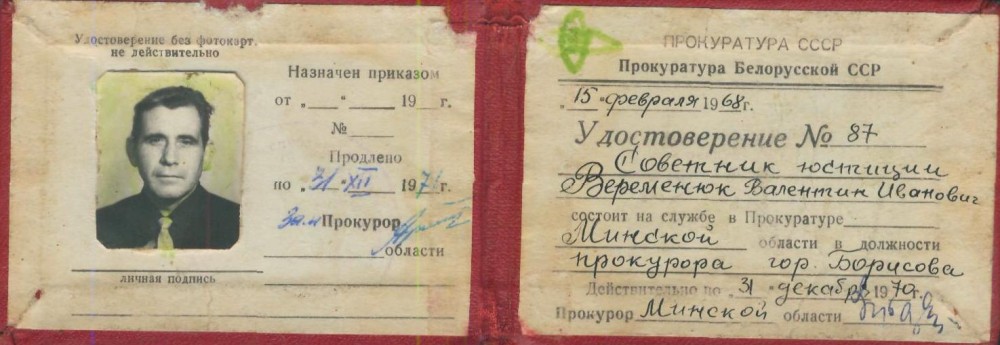 Удостоверение без фотокарт.
не действительно
Назначен приказом
от „ " 19 г.
№
Продлено
по „31" XII 197 г.
Зам Прокурор
области
личная подпись
ПРОКУРАТУРА СССР
Прокуратура Белорусской ССР
„15" февраля 1968 г.
Удостоверение № 87
Советник юстиции
Веременюк Валентин Иванович
состоит на службе в Прокуратуре
Минской области в должности
прокурора гор. Борисова
Действительно по „31" декабря 1970 г.
Прокурор Минской области